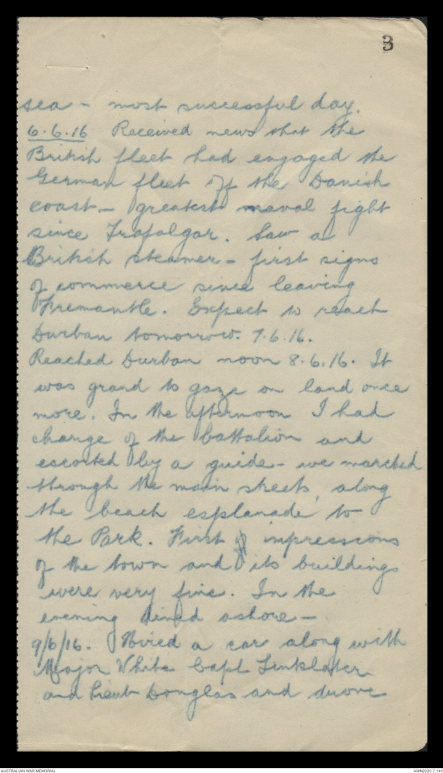 3
sea - most successful day.
6.6.16 Received news that the
British fleet had engaged the
German fleet off the Danish
coast - greatest naval fight
since Trafalgar. Saw a
British steamer - first signs
of commerce since leaving
Fremantle. Expect to reach
Durban tomorrow. 7.6.16.
Reached Durban noon 8.6.16. It
was grand to gaze on land once
more. In the afternoon I had
charge of the battalion and
escorted by a guide - we marched
through the main streets, along
the beach esplanade to
the Park. First impressions
of the town and its buildings
were very fine. In the
evening dined ashore -
9/6/16. Hired a car along with
Major White Capt Linklater
and Lieut Douglas and drove
AUSTRALIAN WAR MEMORIAL